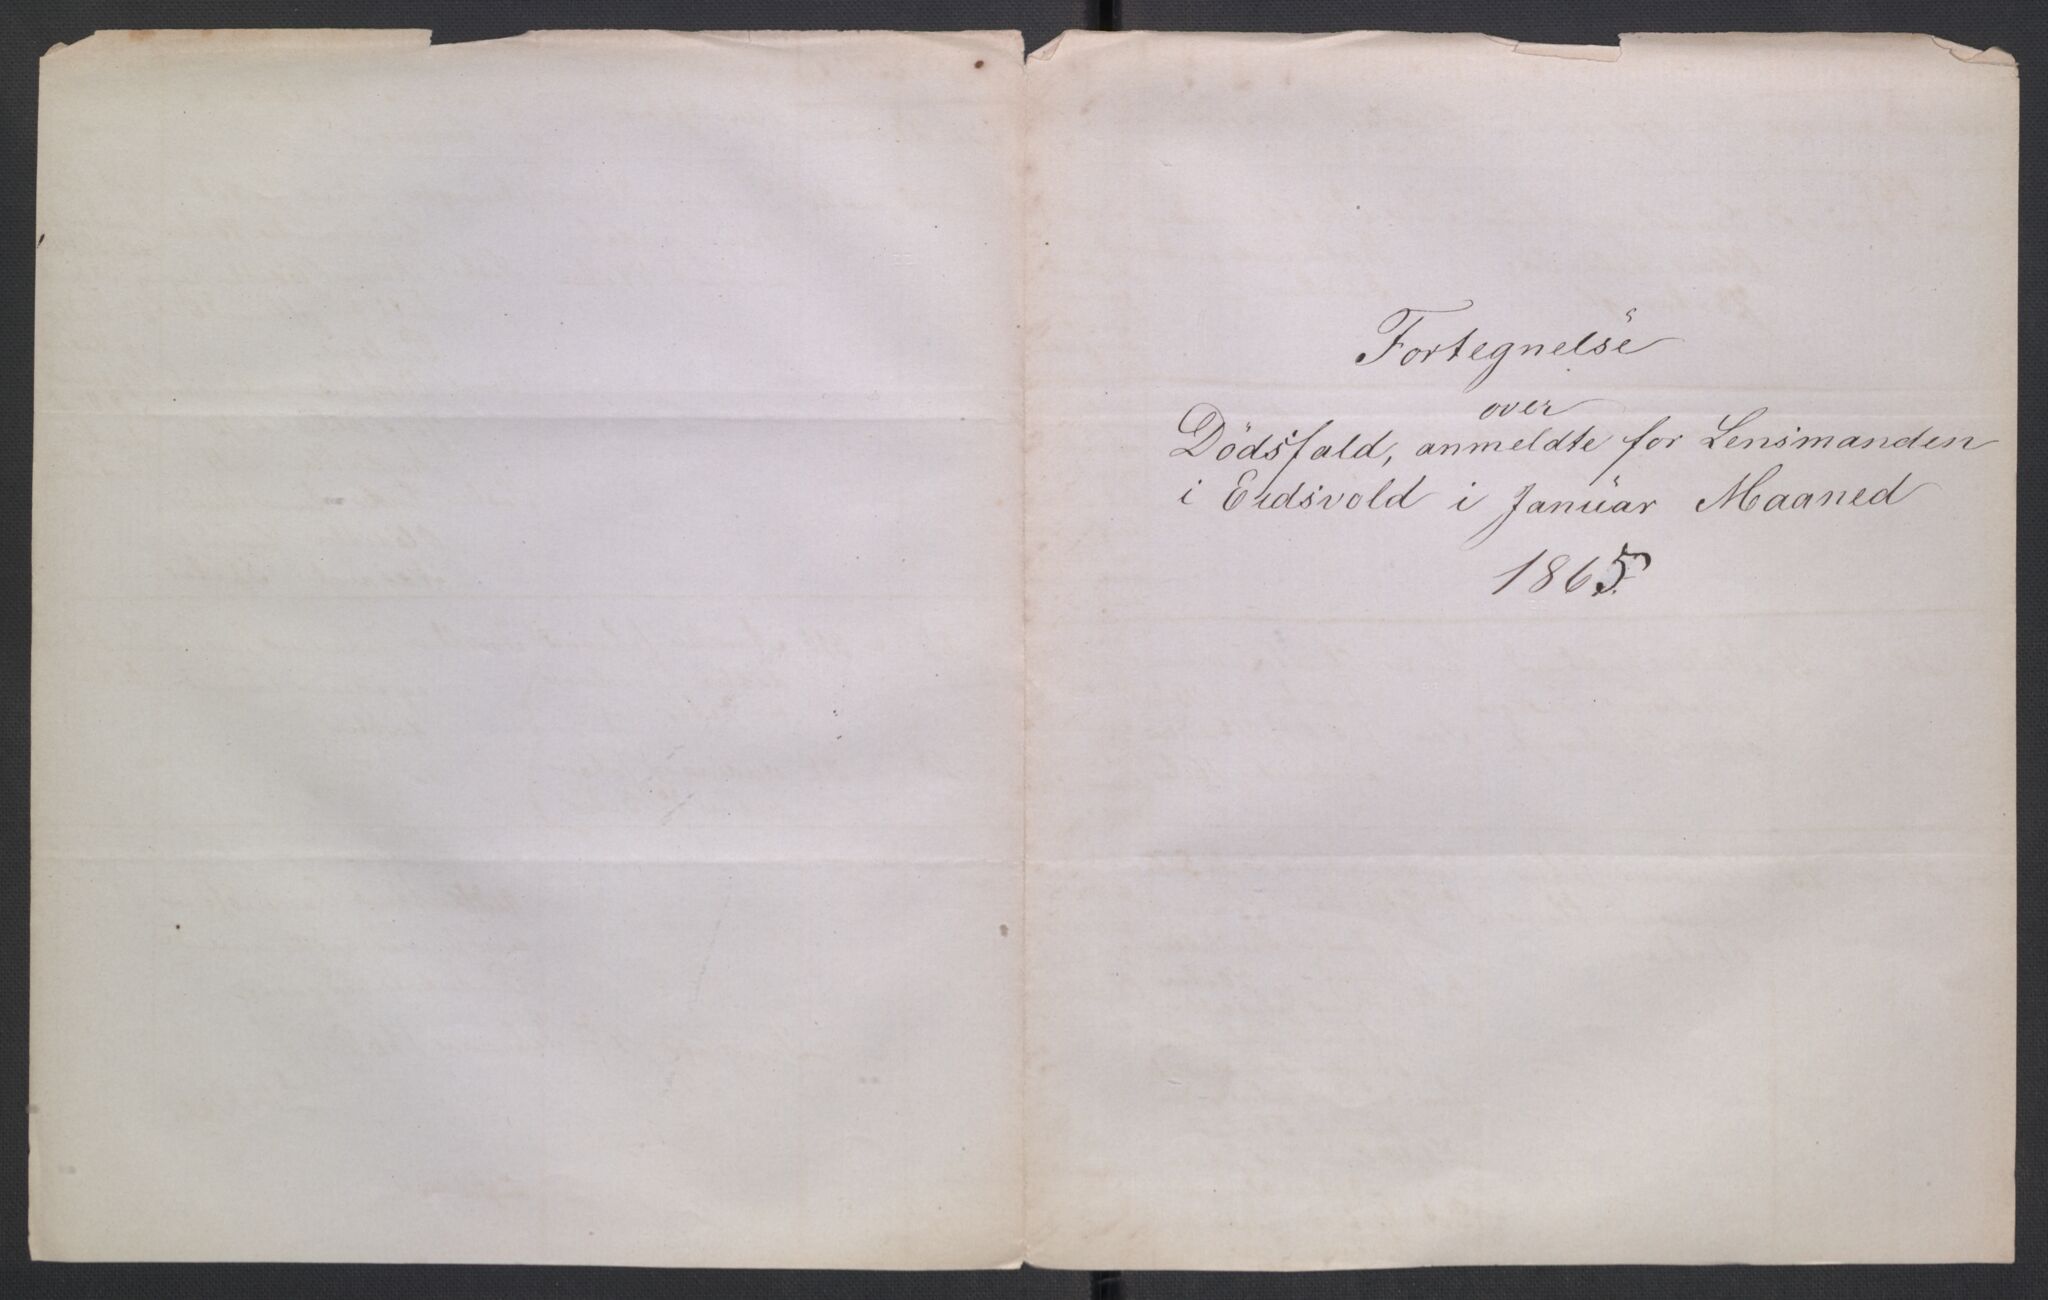 Fortegnelse
over
Dödsfald, anmeldte for Lensmanden
i Eidsvold i Januar Maaned
1865.